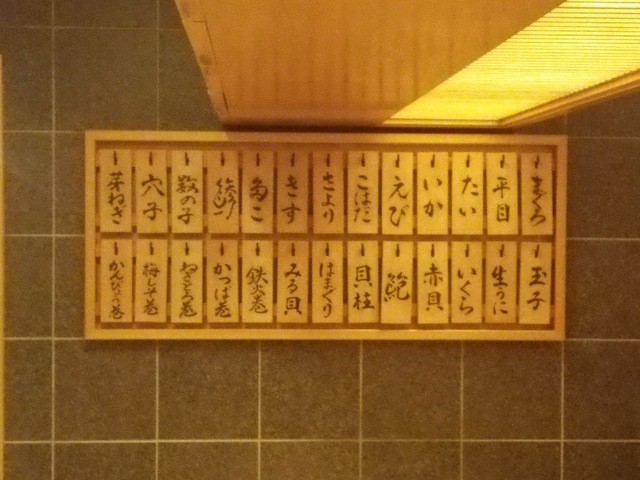 まぐろ
平目
たい
いか
えび
こはだ
さより
きす
数の子
穴子
芽ねぎ
玉子
生うに
いくら
赤貝
貝柱
はまぐり
みる貝
鉄火巻
かっぱ巻
ねぎとろ巻
梅しそ巻
かんぴょう巻